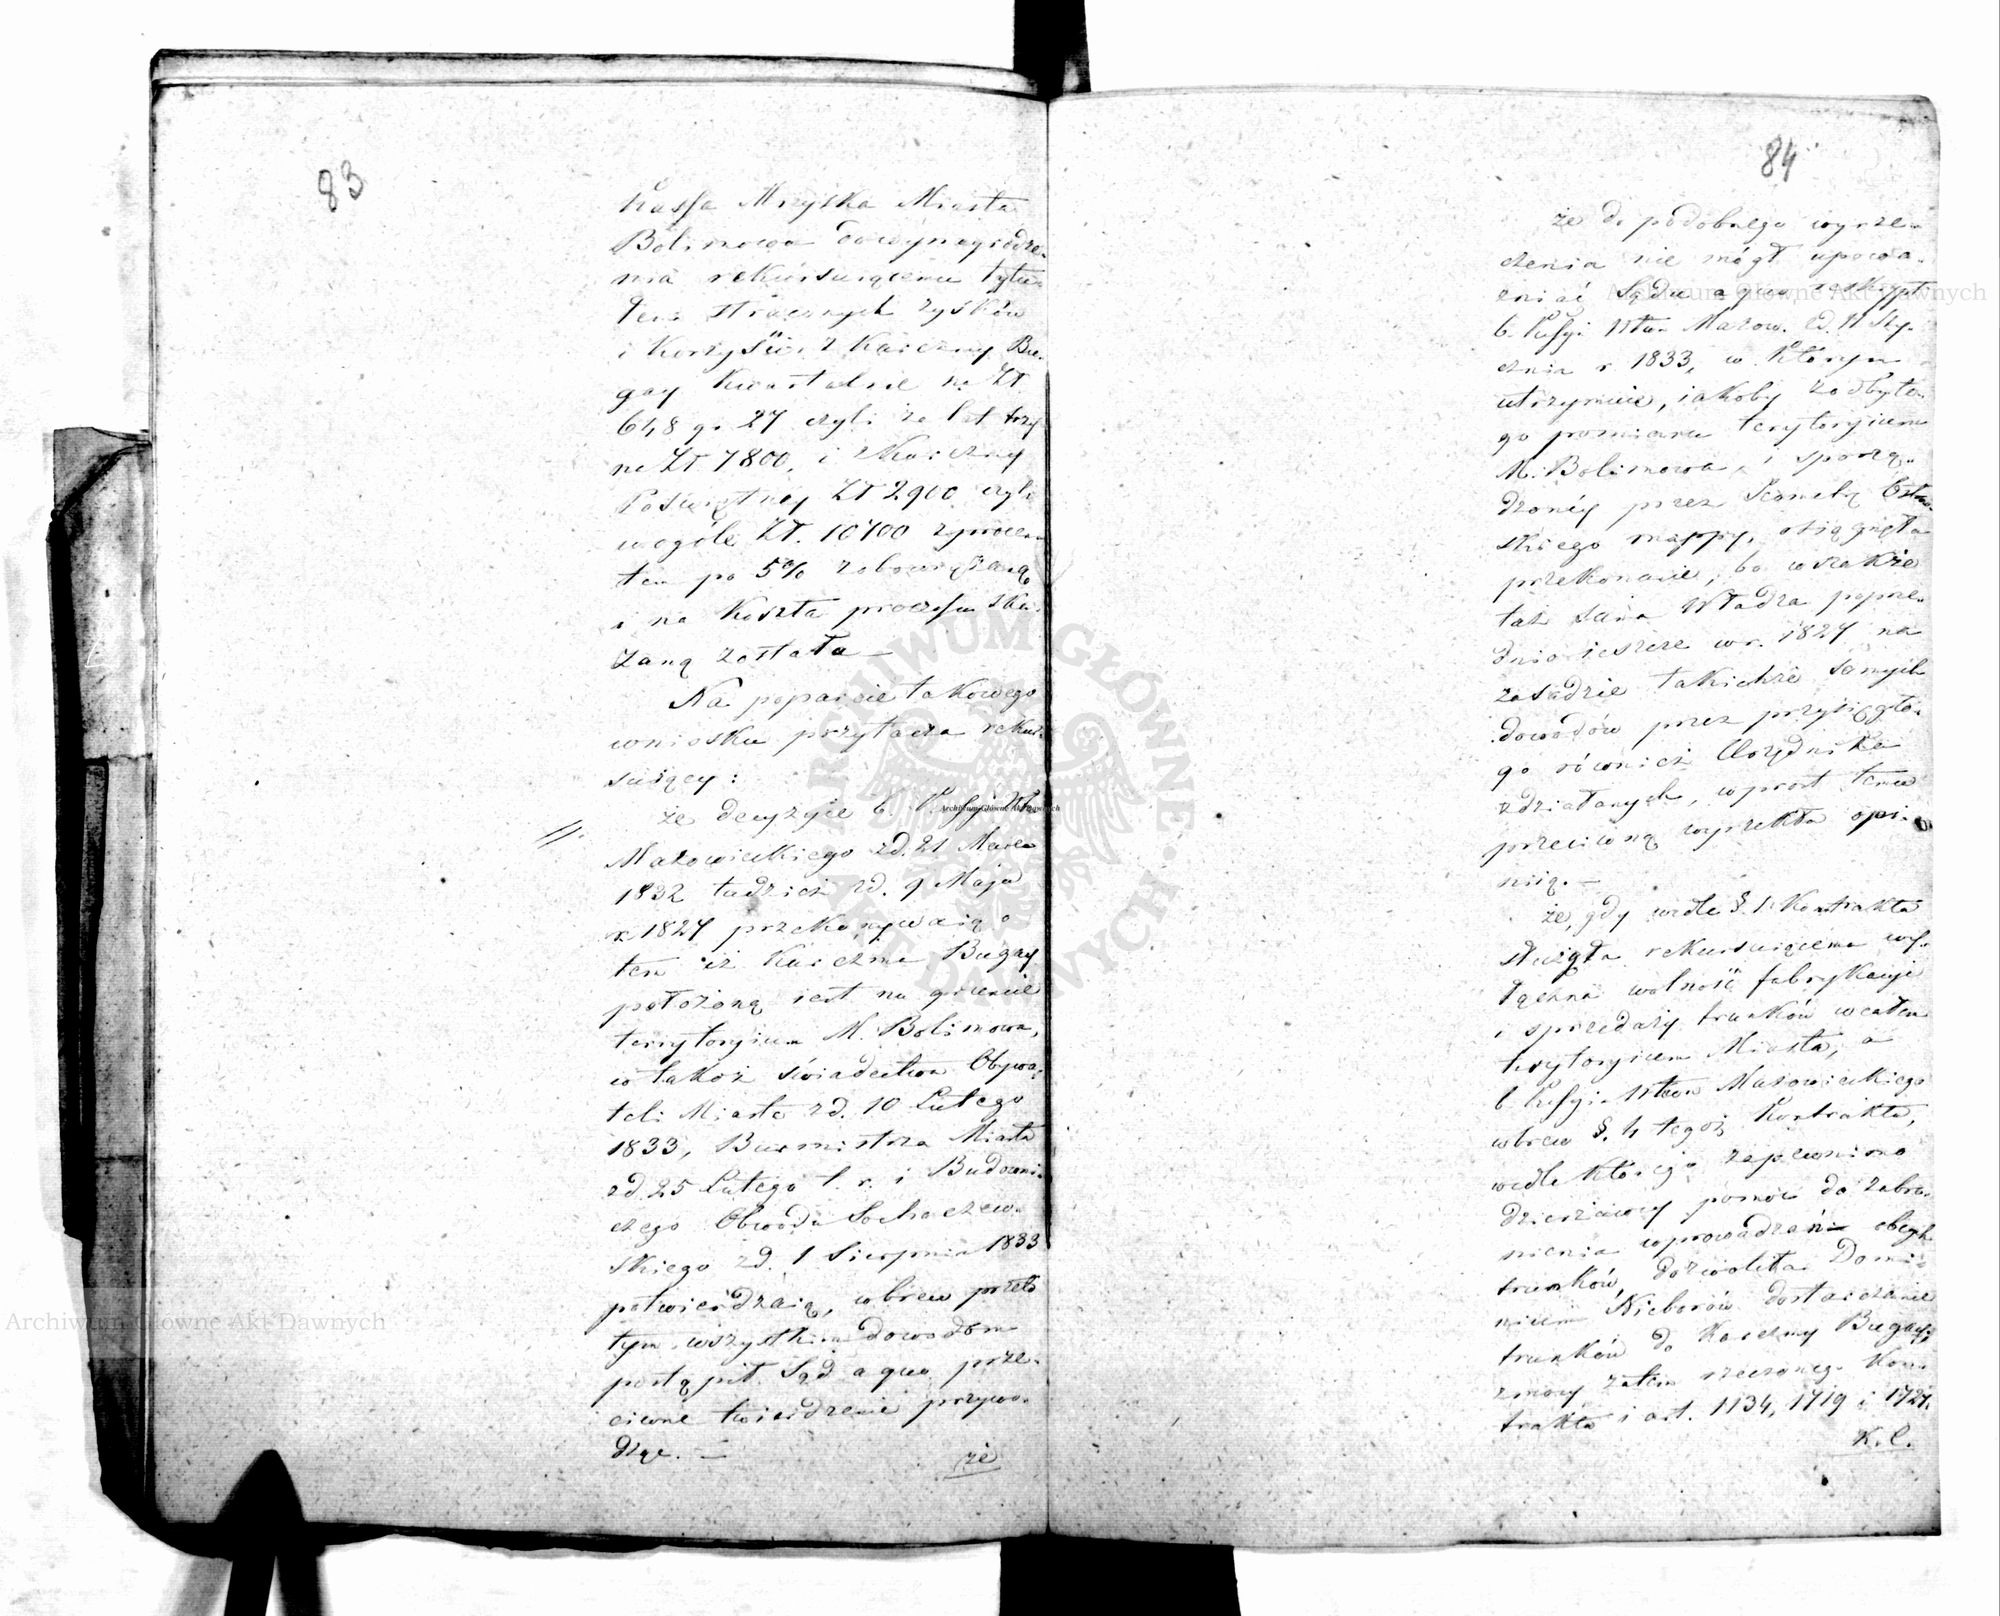 83
Kassa Mieyska Miasta
Bolimowa do wynagrodze-
nia rekursuiącemu tytu-
łem straconych zysków
i korzyści z Karczmy Bu-
gay kwartalnie na Zł
648 gr 27 czyli za lat trzy
na Zł 7800, i z Karczmy
Poświętney Zł 2900 czyli
w ogóle Zł. 10700 z procen-
tem po 5% zobowiązaną
i na koszta processu ska-
zaną została —
Na poparcie takowego
wniosku przytacza rekur-
suiący:
że decyzye b. Kssyi Wtwa
Mazowieckiego z d. 21 Marca
1832 tudzież z d. 9 Maja
r. 1827 przekonywaią o
tem iż Karczma Bugay
położoną iest na gruncie
terrytoryium M. Bolimowa,
co takoż świadectwa Obywa-
teli Miasta z d. 10 Lutego
1833, Burmistrza Miasta
z d. 25 Lutego t. r. i Budowni-
czego Obwodu Sochaczew-
skiego z d. 1 Sierpnia 1833
potwierdzaią, wbrew przeto
tym wszystkim dowodom
postąpił Sąd a quo prze-
ciwne twierdzenie przywo-
dząc. —
że
84
że do podobnego wyrze-
czenia nie mógł upowa-
żniać Sądu a quo reskrypt
b. Kssyi Wtwa Mazow. z d. 11 Sty-
cznia r 1833, w którym
utrzymuie, iakoby z odbyte-
go pomiaru terytoryium
M. Bolimowa, i sporzą-
dzoney przez Jeometrę
skiego mappy, osiągnęła
przekonanie, bo wszakże
taż sama Władza poprze-
dnio ieszcze w r. 1827 na
zasadzie takichże samych
dowodów przez przysięgłe-
go również Urzędnika
zdziałanych, wprost temu
przeciwną wyrzekła opi-
nią. —
że, gdy wedle §. 1 Kontraktu
służyła rekursuiącemu wy-
łączna wolność fabrykacyi
i sprzedaży trunków w całem
terytoryium Miasta, a
b. Kssyi Wtwa Mazowieckiego
wbrew §. 4 tegoż Kontraktu,
wedle którego zapewniono
dzierżawcy pomoc do zabro-
nienia wprowadzań obcych
trunków, dozwoliła Domi-
nium Nieborów dostarczanie
trunków do Karczmy Bugay,
z mocy zatem rzeczonego Kon-
traktu i art. 1134, 1719 i 1727.
K. C.
Archiwum Główne Akt Dawnych
Archiwum Główne Akt Dawnych
Archiwum Główne Akt Dawnych
ARCHIWUM GŁÓWNE • AKT DAWNYCH •